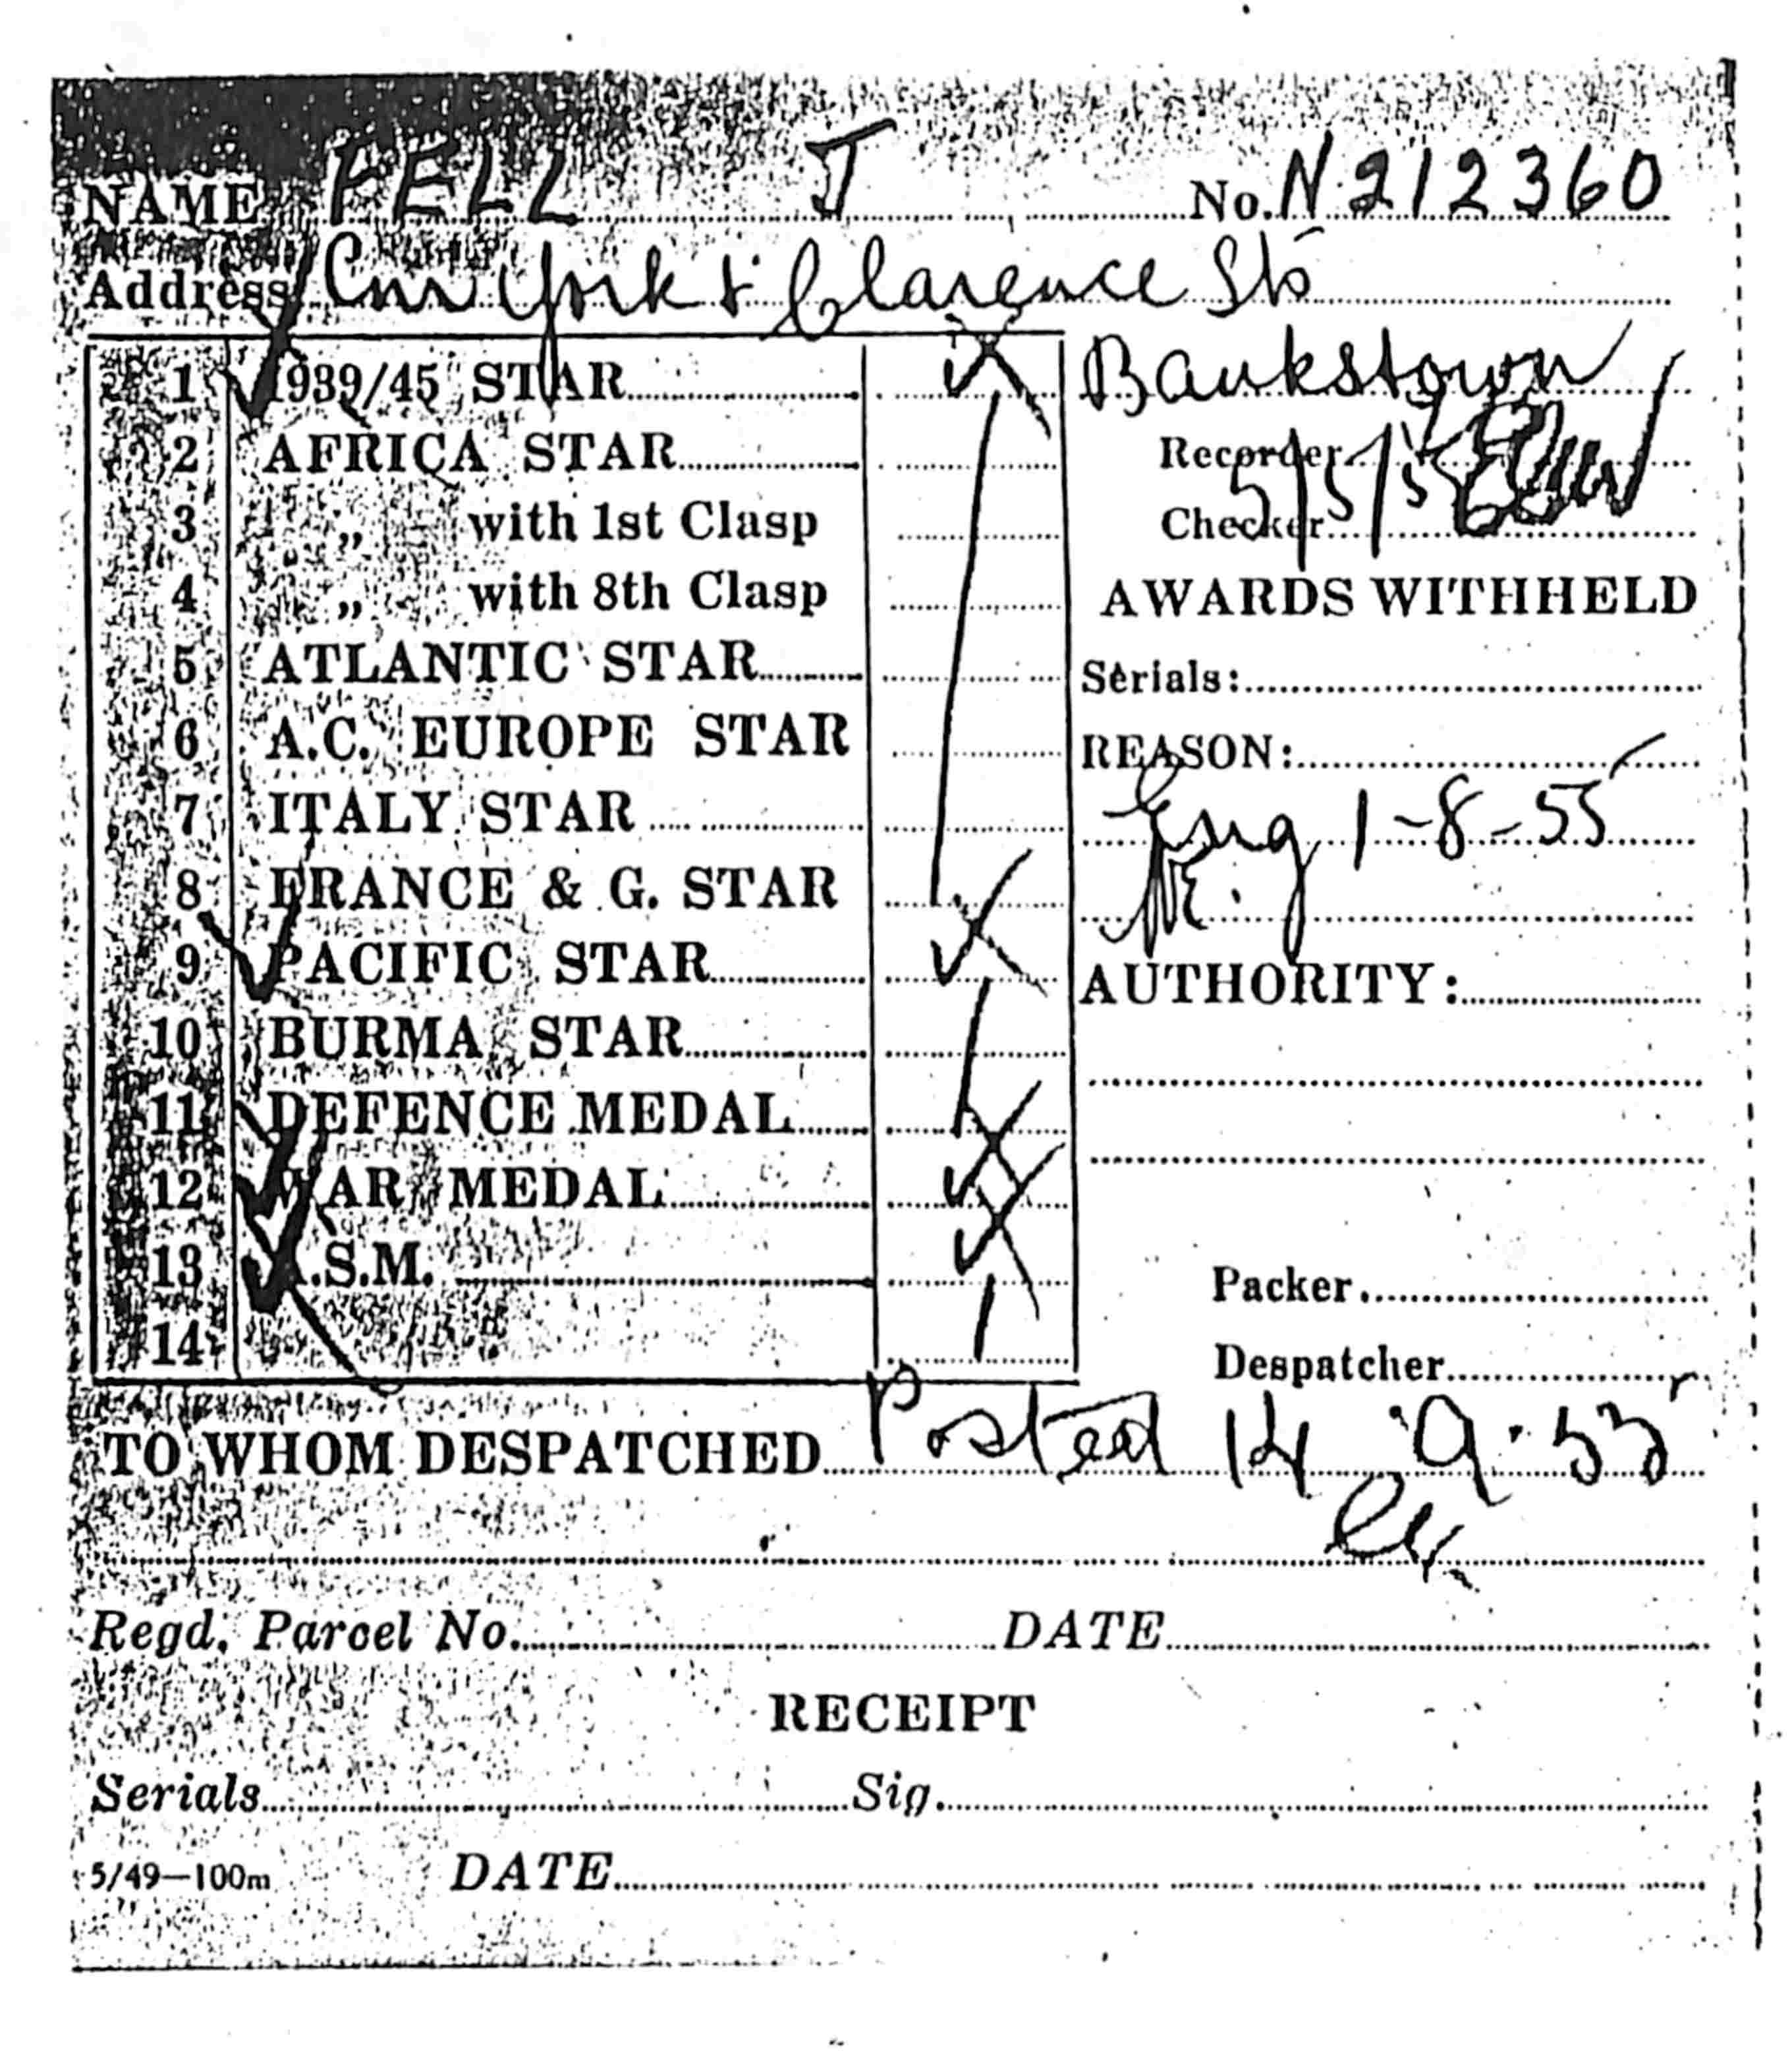 NAME FELL J No. N212360
Address Cnr York & Clarence Sts
Bankstown
1 1939/45 STAR
2 AFRICA STAR
3 „ with 1st Clasp
4 „ with 8th Clasp
5 ATLANTIC STAR
6 A.C. EUROPE STAR
7 ITALY STAR
8 FRANCE & G. STAR
9 PACIFIC STAR
10 BURMA STAR
11 DEFENCE MEDAL
12 WAR MEDAL
13 A.S.M.
14
Recorder
Checker
AWARDS WITHHELD
Serials:
REASON:
Eng 1-8-55
AUTHORITY:
Packer
Despatcher
TO WHOM DESPATCHED Posted 14.9.55
Regd. Parcel No. DATE
RECEIPT
Serials Sig.
5/49—100m DATE